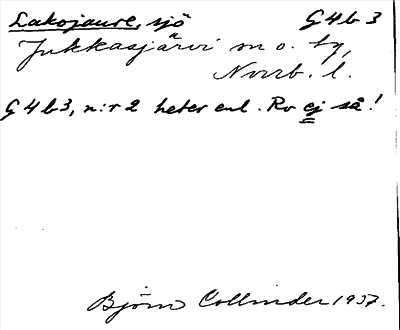 Lakojaure, sjö G4b3
Jukkasjärvi sn o. tg,
Norrb. l.
G4b3, n:r 2 heter enl. Ro ej så!
Björn Collinder 1937.